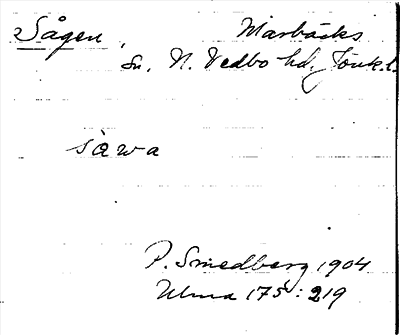 Sågen, Marbäcks
sn. N. Vedbo hd. Jönk.l.
sàwa
P. Smedberg 1904
Ulma 175:219